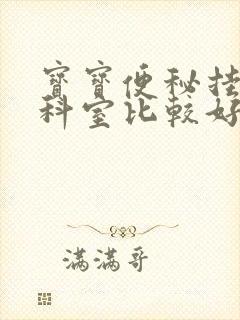 寶寶便秘挂
科室比較好
滿滿哥